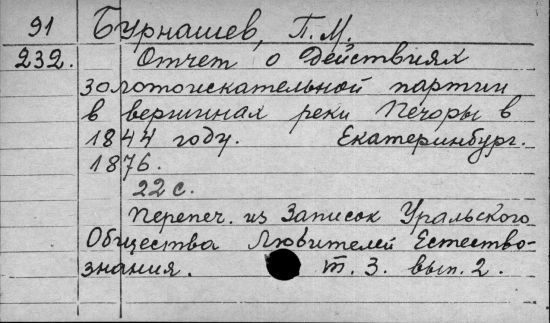 91 Бурнашев, П. М.
232. Отчет о действиях
золотоискательной партии
в вершинах реки Печоры в
1844 году. Екатеринбург.
1876.
22 с.
Перепеч. из Записок Уральского
Общества Любителей Естество-
знания. т. 3. вып. 2.